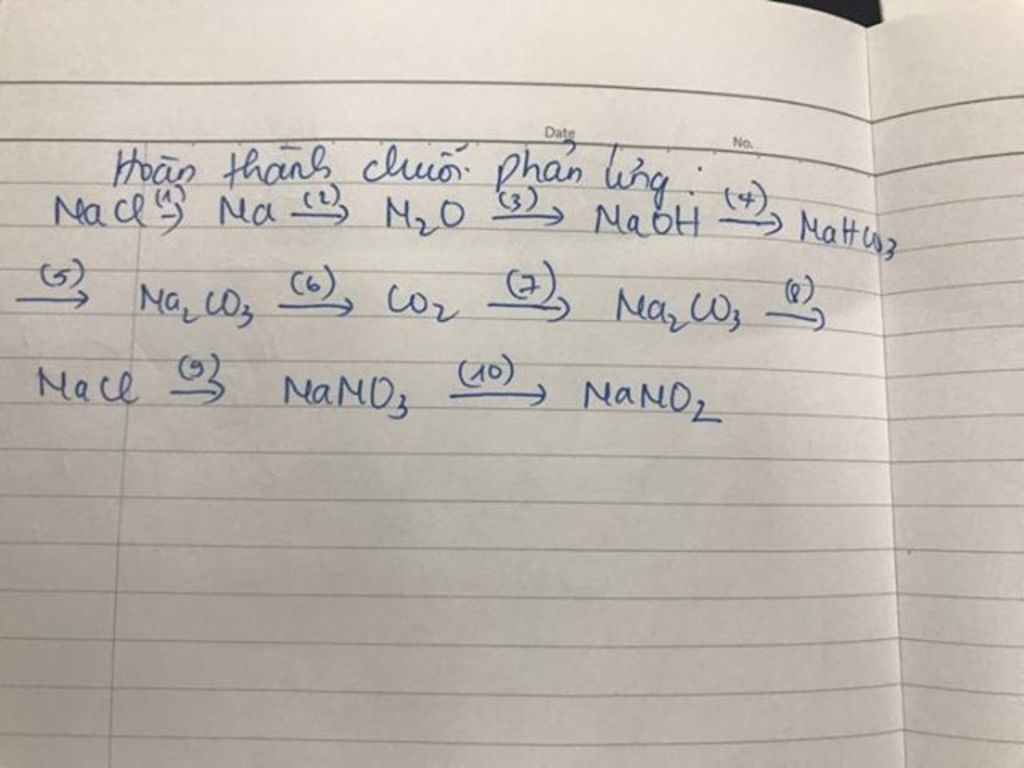 Date No.
Hoàn thành chuỗi phản ứng:
NaCl (1)→ Na (2)→ N₂O (3)→ NaOH (4)→ NaHCO₃
(5)→ Na₂CO₃ (6)→ CO₂ (7)→ Na₂CO₃ (8)→
NaCl (9)→ NaNO₃ (10)→ NaNO₂